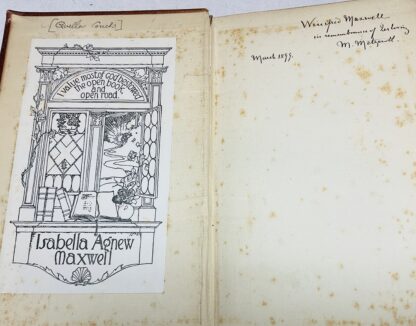 [Quiller Couch]
I value most of God's bequest
the open book
and open road.
Isabella Agnew
Maxwell
Winifred Maxwell
in remembrance of
M. Maxwell
March 1899.